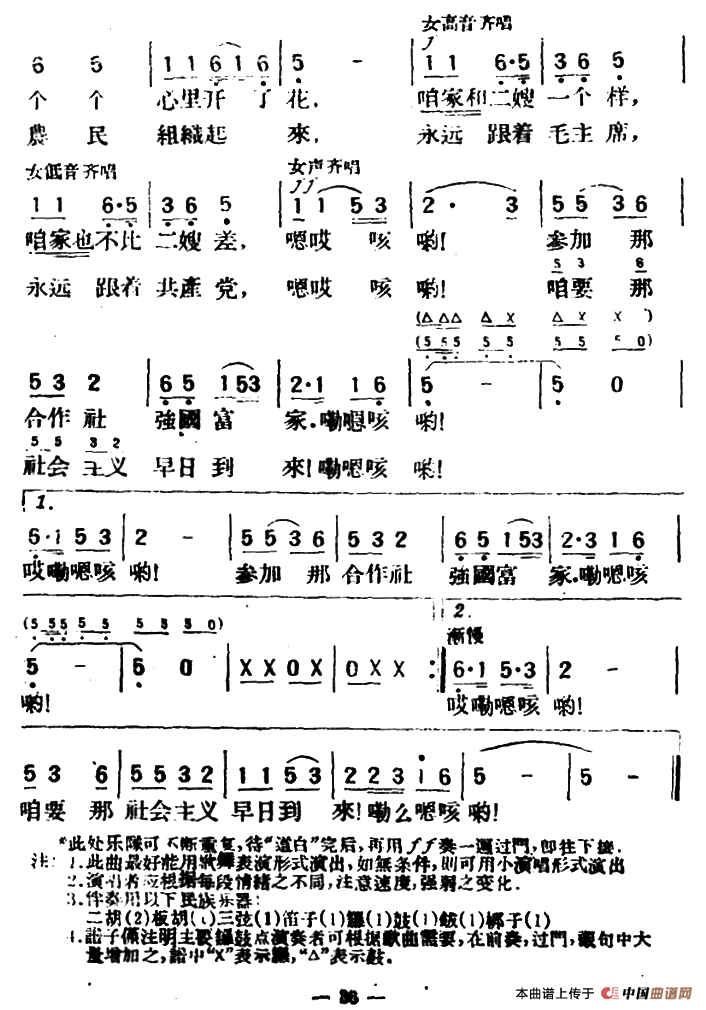 女高音齐唱
f
6 5 | 1 1 6 1 6 | 5 - | 1 1 6·5 | 3 6 5 |
个 个 心里开 了 花, 咱家和二嫂 一个 样,
農 民 組織起 來, 永远 跟着 毛主 席,
女低音齐唱 女声齐唱
ff
1 1 6·5 | 3 6 5 | 1 1 5 3 | 2 · 3 | 5 5 3 6 |
咱家也不比 二嫂 差, 嗯哎 咳 喲! 参加 那
5 3 6
永远 跟着 共產 党, 嗯哎 咳 喲! 咱要 那
(△△△ △ X △ X X )
(5 5 5 5 5 5 5 5 0)
5 3 2 | 6 5 1 5 3 | 2·1 1 6 | 5 - | 5 0 |
合作 社 強國 富 家·嘞嗯咳 喲!
5 5 3 2
社会 主义 早日 到 來!嘞嗯咳 喲!
1.
6·1 5 3 | 2 - | 5 5 3 6 | 5 3 2 | 6 5 1 5 3 | 2·3 1 6 |
哎嘞嗯咳 喲! 参加 那 合作 社 強國富 家·嘞嗯咳
(5 5 5 5 5 5 3 3 0) 2.
渐慢
5 - | 5 0 | X X 0 X | 0 X X :‖ 6·1 5·3 | 2 - |
喲! 哎嘞嗯咳 喲!
5 3 6 | 5 5 3 2 | 1 1 5 3 | 2 2 3 i 6 | 5 - | 5 - ‖
咱要 那 社会主义 早日到 來!嘞么嗯咳 喲!
*此处乐隊可不断重复,待“道白”完后,再用ff奏一遍过門,卽往下接.
注:1.此曲最好能用歌舞表演形式演出,如無条件,則可用小演唱形式演出
2.演唱者应根据每段情緒之不同,注意速度,强弱之变化.
3.伴奏用以下民族乐器:
二胡(2)板胡(1)三弦(1)笛子(1)鑼(1)鼓(1)鈸(1)梆子(1)
4.譜子僅注明主要鑼鼓点演奏者可根据歌曲需要,在前奏,过門,觀句中大
量增加之,譜中“X”表示鑼,“△”表示鼓.
— 36 —
本曲谱上传于 中国曲谱网